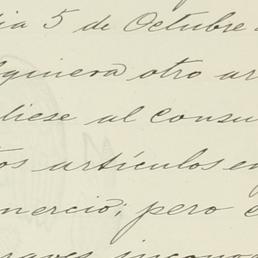 dia 5 de Octubre
lquiera otro ar
liese al consu
tos artículos en
mercio; pero e
graves incono